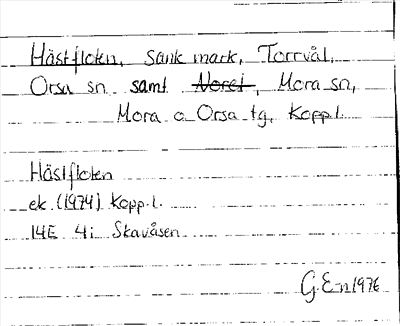 Hästfloten, sank mark, Torrvål,
Orsa sn samt Noret, Mora sn,
Mora o Orsa tg, Kopp.l.
Hästfloten
ek. (1974) Kopp.l.
14E 4i Skavåsen
G.E-n 1976